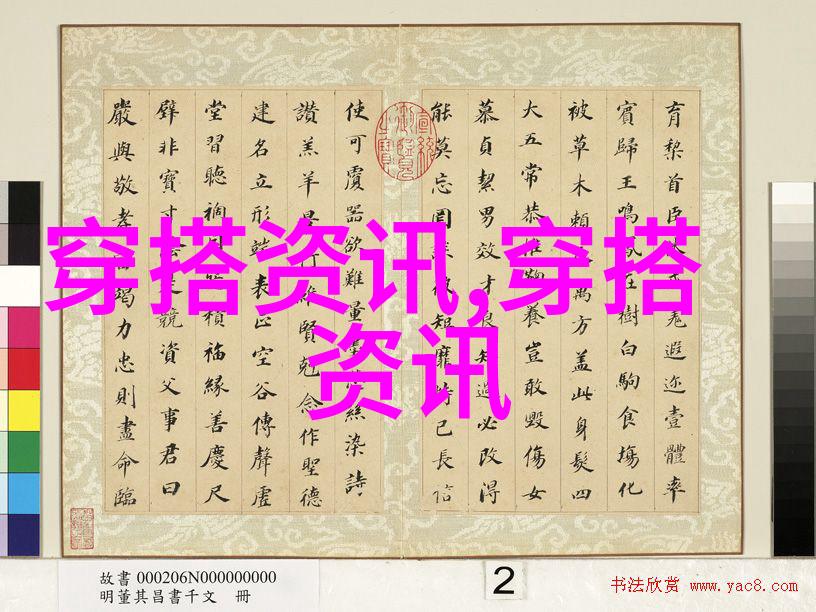 育黎首臣羌遐迩壹體率
賓歸王鳴在樹白駒食場化
被草木賴萬方蓋此身髮四
大五常恭惟養豈敢毀傷女
慕貞絜男效才良知過必改得
能莫忘罔短靡恃己長信
使可覆器欲難量絲染詩
讚羔羊景行維賢剋念作聖德
建名立形端表正空谷傳聲虛
堂習聽禍積福緣善慶尺
璧非寶寸競資父事君曰
嚴與敬孝竭力忠則盡命臨
穿搭资讯,穿搭
资讯
故書 000206N000000000
明董其昌書千文 冊
2
书法欣赏 www.yac8.com